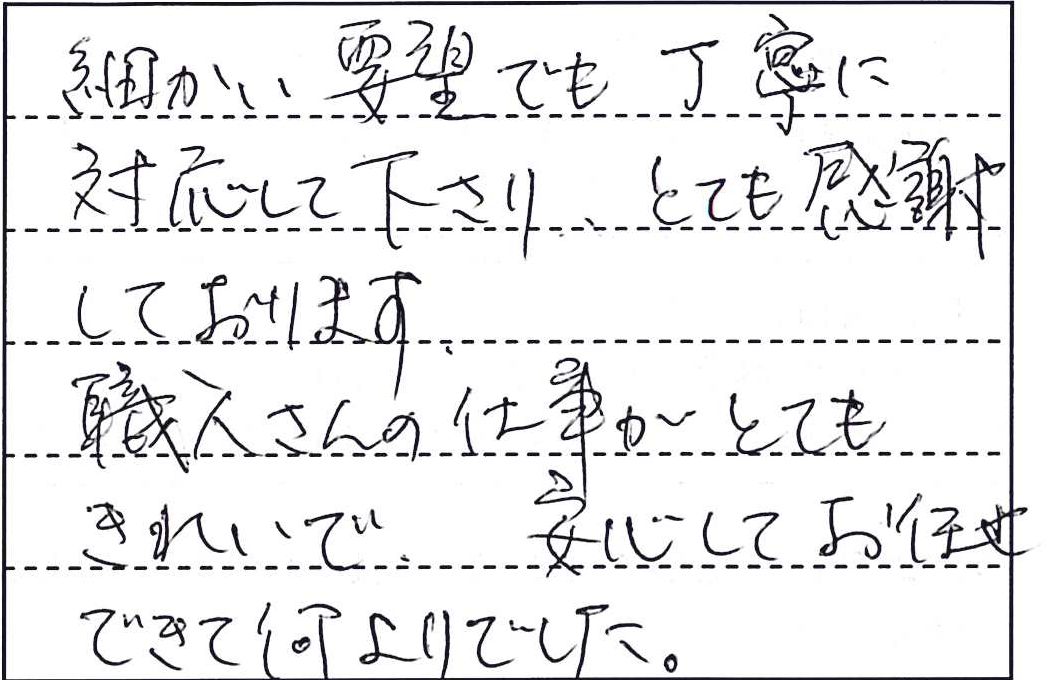 細かい要望でも丁寧に
対応して下さり、とても感謝
しております。
職人さんの仕事がとても
きれいで、安心してお任せ
できて何よりでした。